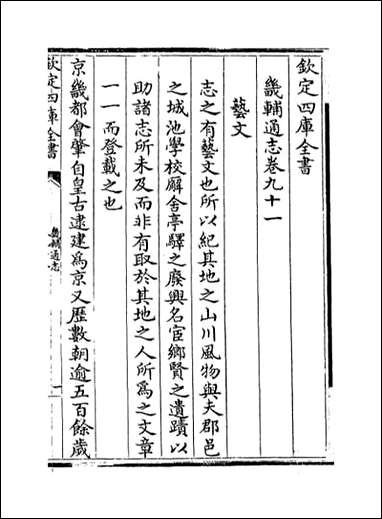 欽定四庫全書
畿輔通志卷九十一
藝文
志之有藝文也所以紀其地之山川風物與夫郡邑
之城池學校廨舍亭驛之廢興名宦鄉賢之遺蹟以
助諸志所未及而非有取於其地之人所為之文章
一一而登載之也
京畿都會肇自皇古逮建為京又歴數朝逾五百餘歲
欽定四庫全書
畿輔通志
一